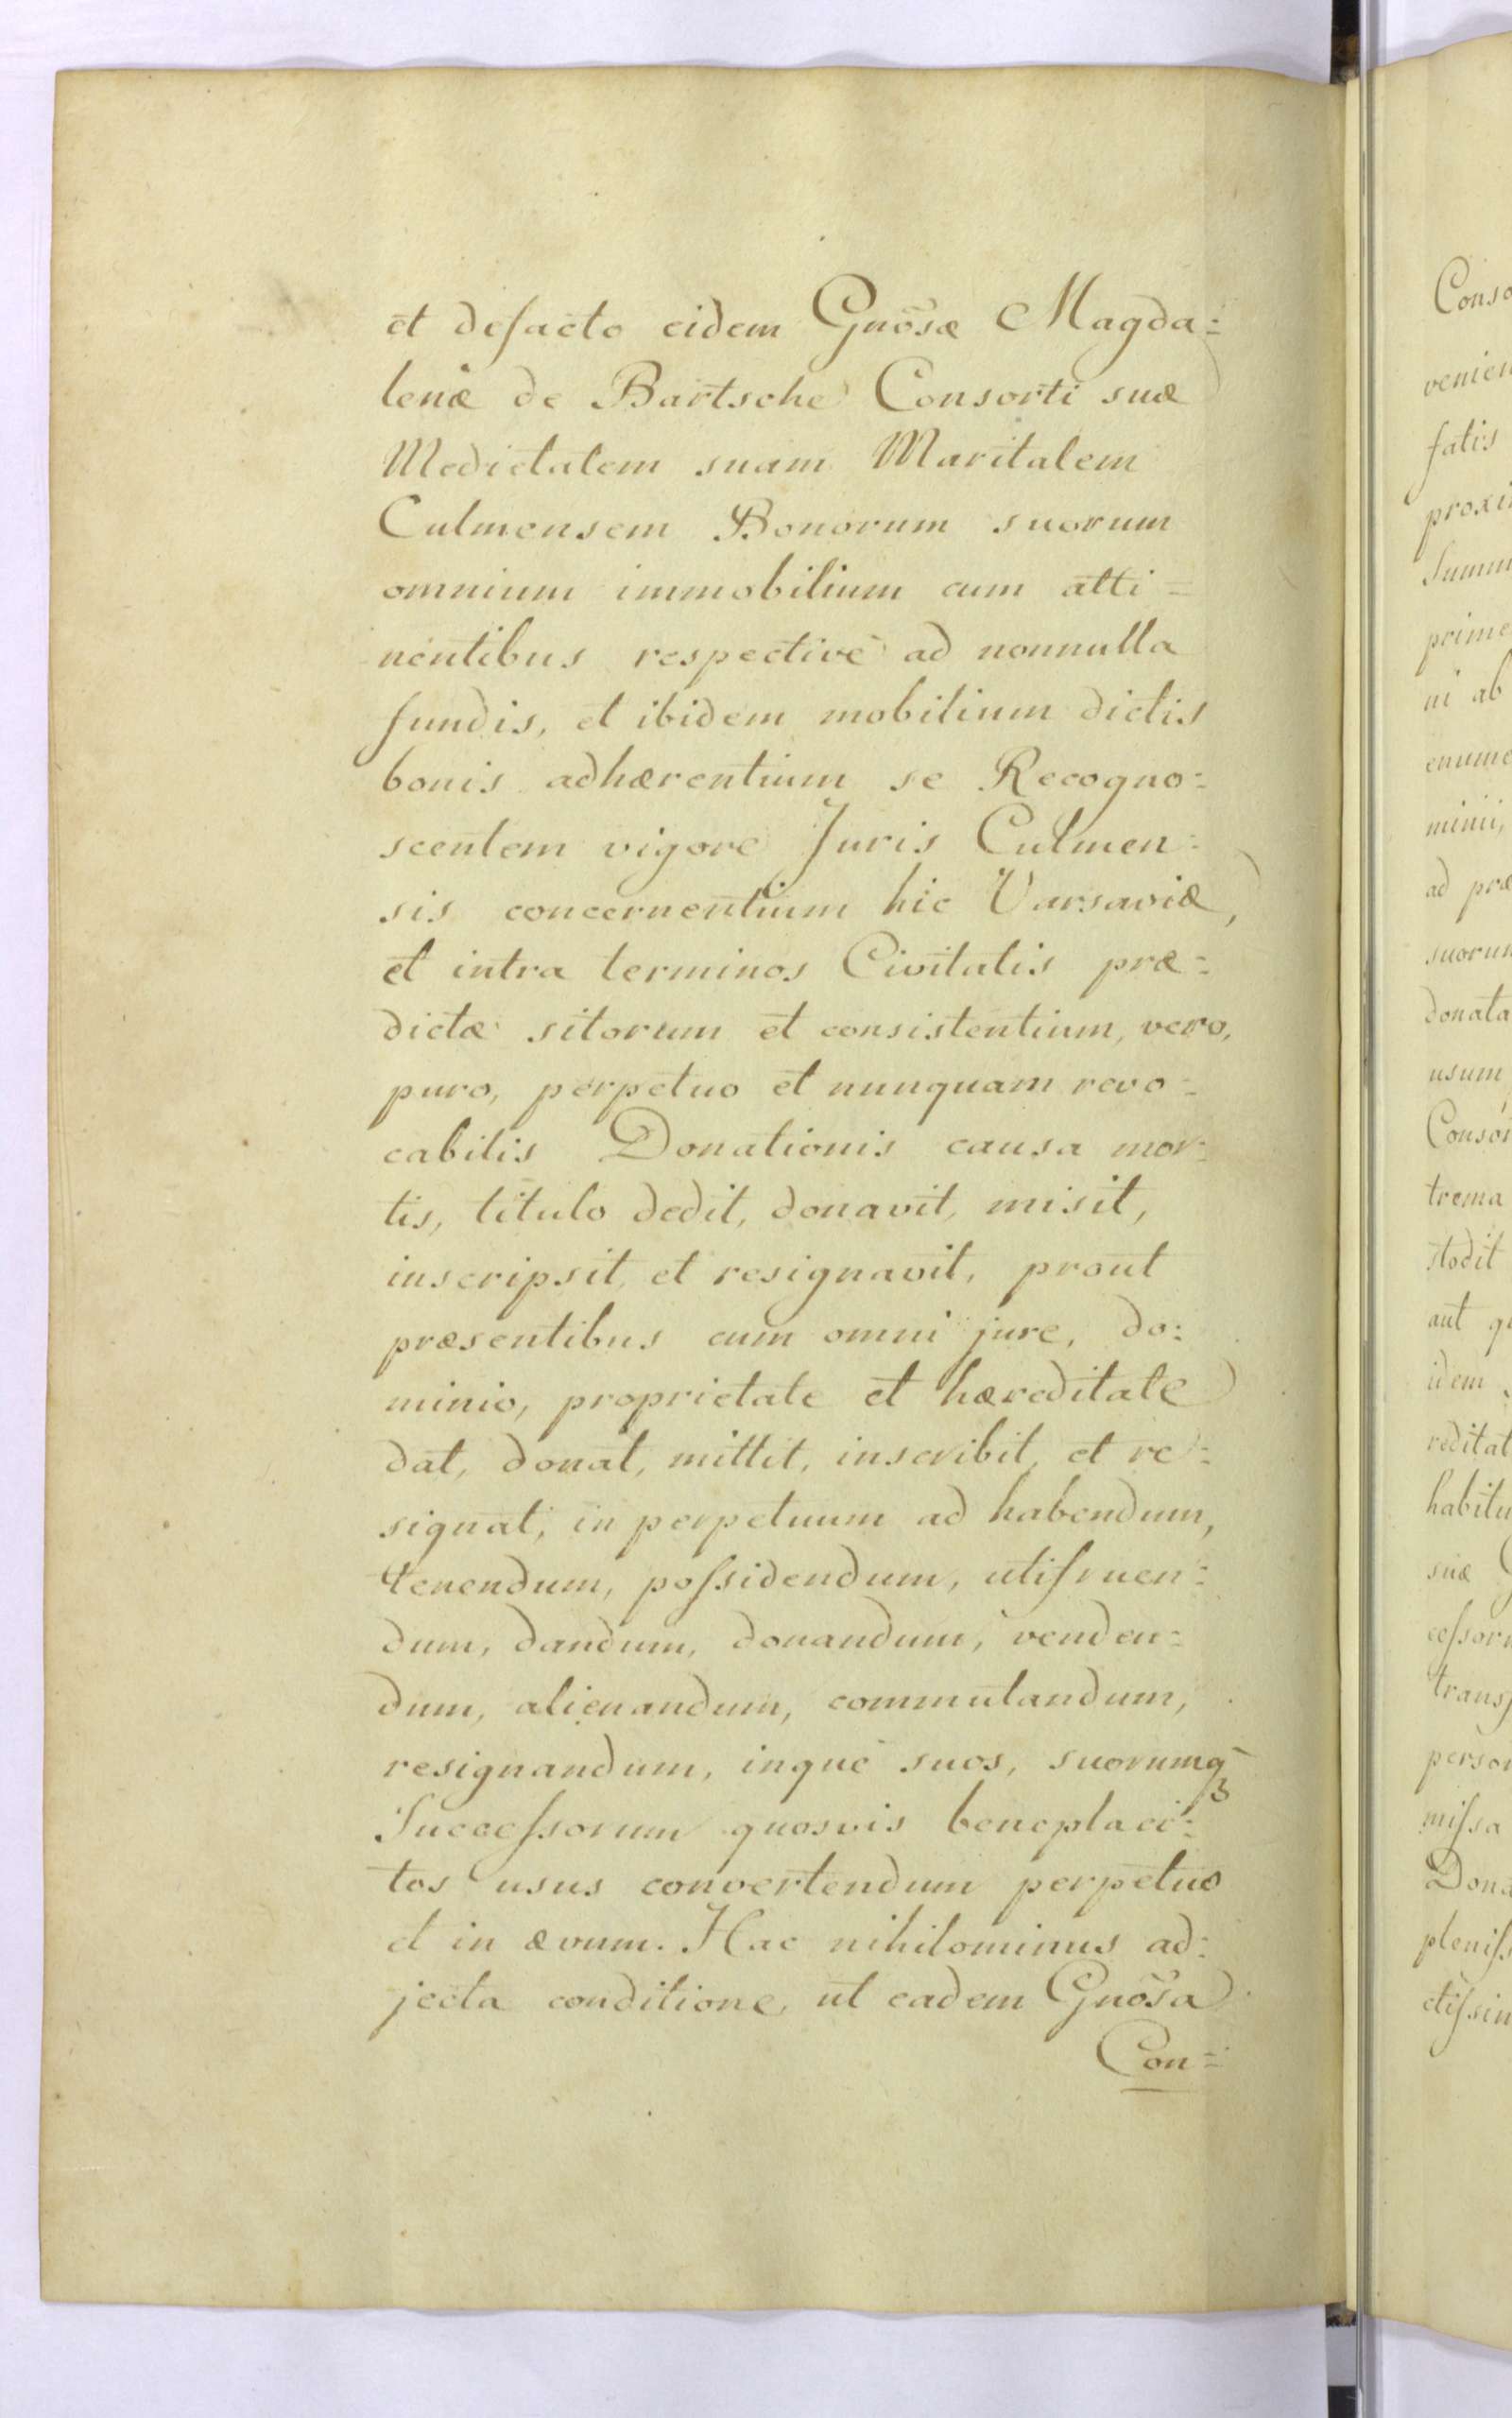 et defacto eidem Gnõsæ Magda=
lenæ de Bartsche Consorti suæ
Medietatem suam Maritalem
Culmensem Bonorum suorum
omnium immobilium cum atti=
nentibus respectivè ad nonnulla
fundis, et ibidem mobilium dictis
bonis adhærentium se Recogno=
scentem vigore Juris Culmen=
sis concernentium hic Varsaviæ,
et intra terminos Civitatis præ=
dictæ sitorum et consistentium, vero,
puro, perpetuo et nunquam revo=
cabilis Donationis causa mor=
tis, titulo dedit, donavit, misit,
inscripsit, et resignavit, prout
præsentibus cum omni jure, do=
minio, proprietate et hæreditate
dat, donat, mittit, inscribit, et re=
signat, in perpetuum ad habendum,
tenendum, poſsidendum, utifruen=
dum, dandum, donandum, venden=
dum, alienandum, commutandum,
resignandum, inquè suos, suorumqꝫ
Succeſsorum quosvis beneplaci=
tos usus convertendum perpetuo
et in ævum. Hac nihilominus ad=
jecta conditione, ut eadem Gnõsa
Con=
Conso
venien
fatis
proxi
Summ
prime
ni ab
enume
minii,
ad præ
suorum
donata
usum
Consor
trema
stodit
aut q
idem
reditat
habitu
suæ
ceſsor
trans
person
miſsa
Dona
pleniſs
ctiſsim